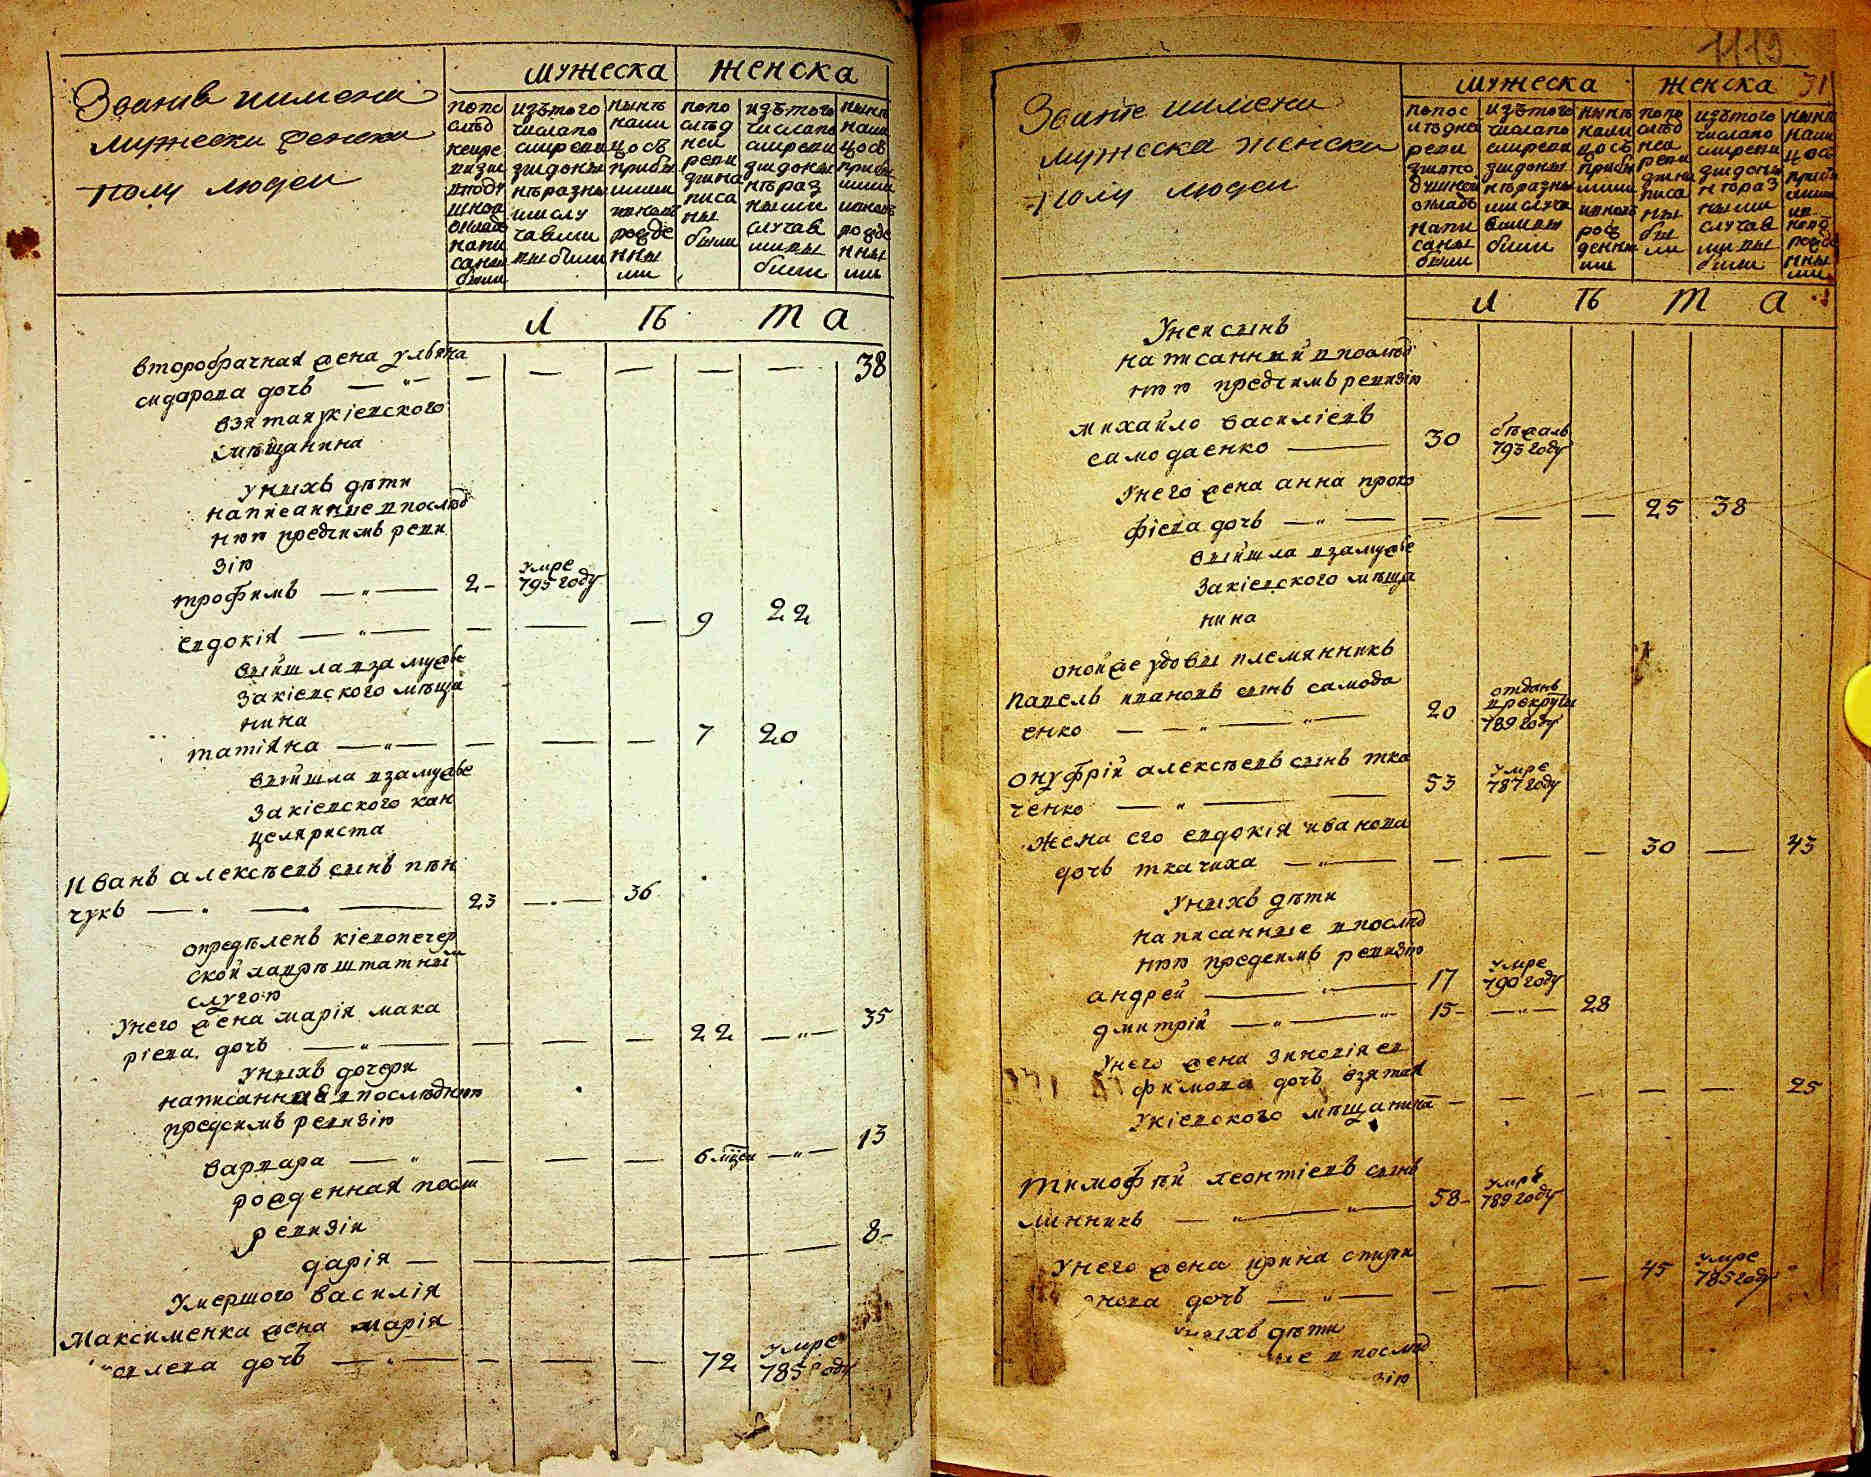 Званиѣ иимена
мужеска женска
полу людеи
мужеска женска
попо
слѣд
неире
визи
иподу
шном
окладе
напи
саны
были
изътого
числапо
смерени
зшедоны
нѣразны
мислу
чаями
выбыли
нынѣ
нали
цосъ
прибы
шими
ивновь
рожде
нны
ми
попо
слѣд
неи
реви
зшина
писа
ны
были
изътого
числапо
смерени
зшедоны
нѣраз
ными
случая
мивы
были
нынѣ
нали
цосъ
прибы
шими
ивновь
рожде
нны
ми
Л Ѣ Т А
второбрачная жена ульяна
сидорова дочь — „ — — — — — — 38
взятаяукіевского
мѣщанина
унихъ дѣти
написанные впослѣд
нюю предсимъ реви
зію
трофимъ — „ — 2 - умре
795 году
евдокія — „ — — — — 9 22
выйшлавзамужже
закіевского мѣща
нина
татіяна — „ — — — — 7 20
выйшла взамужже
закіевского кан
целяриста
иванъ алексѣевъ сынъ пѣн
чукъ — „ — 23 — 36
опредѣленъ кіевопечер
ской лаврѣ штатным
слугою
унего жена марія мака
ріева дочь — „ — — — — 22 — „ — 35
унихъ дочери
написанныя впослѣднюю
предсимъ ревизію
варвара — „ — — — 6 мцей — „ — 13
рожденная посли
ревизіи
дарія — — — — — — 8 -
умершого василія
максименка жена марія
дочь — „ — — — — 72 умре
785 году
1119
31
Званіе иимени
мужеска женски
полу людеи
мужеска женска
попос
лѣдней
реви
зшпо
душном
окладѣ
напи
саны
были
изътого
числапо
смерени
зшедоны
нѣразны
мислуча
ямивы
были
нынѣ
нали
цосъ
прибы
шими
ивновь
рож
денны
ми
попо
слѣд
неи
реви
зшина
писа
ны
бы
ли
изътого
числапо
смерени
зшедоны
нѣраз
ными
случая
мивы
были
нынѣ
нали
цосъ
прибы
шими
ив
новь
рожде
нны
ми
Л Ѣ Т А
унеи сынъ
написанный впослѣд
нюю предсимъ ревизію
михайло василіевъ
самодаенко — 30 бѣжалъ
793 году
унего жена анна проко
фіева дочь — „ — — — — 25 38
выйшла взамужже
закіевского мѣща
нина
онойже удовы племянникъ
павелъ ивановъ сынъ самода
енко — „ — „ — 20 отданъ
врекруты
789 году
онуфрій алексѣевъ сынъ тка
ченко — „ — 53 умре
787 году
жена его евдокія иванова
дочь ткачиха — „ — — — — 30 — 43
унихъ дѣти
написанные впослѣд
нюю предсимъ ревизію
андрей — „ — 17 умре
790 году
дмитрій — „ — „ 15 - — „ — 28
унего жена зиновія ев
фимова дочь взятая
укіевского мѣщанина — — — — — 25
тимофѣй леонтіевъ сынъ
линникъ — „ — „ — 58 - умре
789 году
унего жена ирина спири
онова дочь — „ — — — — 45 умре
785 году
унихъ дѣти
ые впослѣд
зію